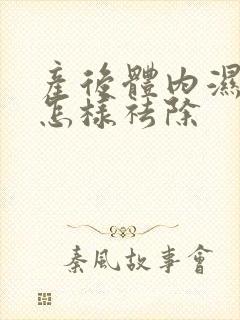 產後體內濕
怎樣祛除
秦風故事會